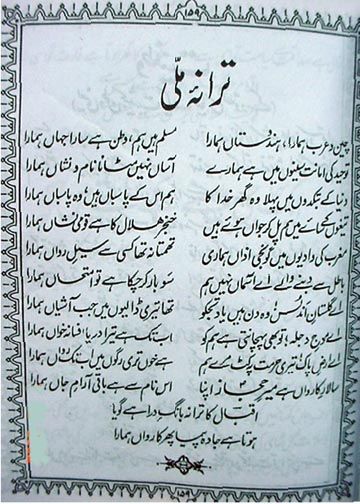 ۱۵۹
ترانۂ ملّی
چین و عرب ہمارا، ہندوستاں ہمارا مسلم ہیں ہم، وطن ہے سارا جہاں ہمارا
توحید کی امانت سینوں میں ہے ہمارے آساں نہیں مٹانا نام و نشاں ہمارا
دنیا کے بتکدوں میں پہلا وہ گھر خدا کا ہم اس کے پاسباں ہیں، وہ پاسباں ہمارا
تیغوں کے سائے میں ہم پل کر جواں ہوئے ہیں خنجر ہلال کا ہے قومی نشاں ہمارا
مغرب کی وادیوں میں گونجی اذاں ہماری تھمتا نہ تھا کسی سے سیلِ رواں ہمارا
باطل سے دبنے والے اے آسماں نہیں ہم سو بار کر چکا ہے تو امتحاں ہمارا
اے گلستانِ اندلس! وہ دن ہیں یاد تجھ کو تھا تیری ڈالیوں میں جب آشیاں ہمارا
اے موجِ دجلہ! تو بھی پہچانتی ہے ہم کو اب تک ہے تیرا دریا افسانہ خواں ہمارا
اے ارضِ پاک! تیری حرمت پہ کٹ مرے ہم ہے خوں تری رگوں میں اب تک رواں ہمارا
سالارِ کارواں ہے میرِ حجاز اپنا اس نام سے ہے باقی آرامِ جاں ہمارا
اقبال کا ترانہ بانگِ درا ہے گویا
ہوتا ہے جادہ پیما پھر کارواں ہمارا
۱۵۹